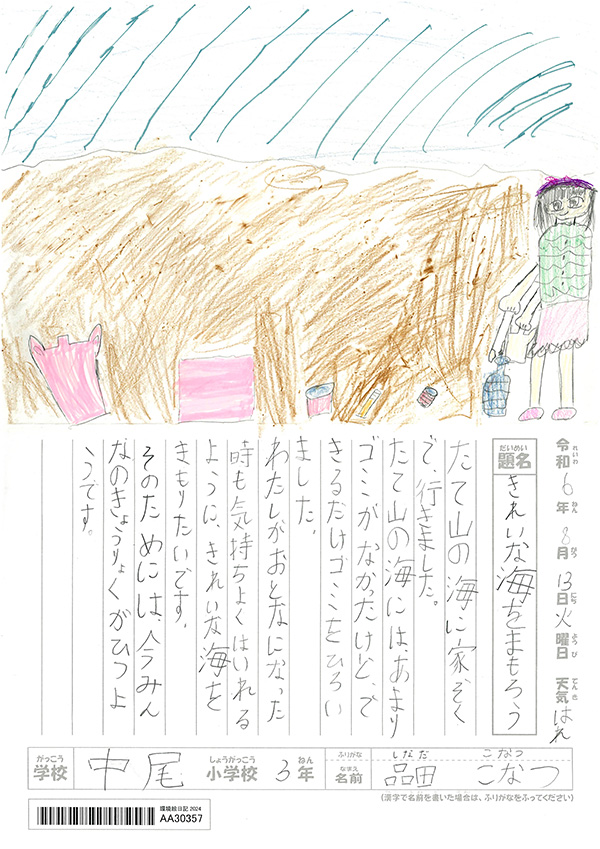 令和6年8月13日火曜日 天気はれ
れいわ ねん がつ にち ようび てんき
だいめい
題名 きれいな海をまもろう
たて山の海に家ぞく
で、行きました。
たて山の海には、あまり
ゴミがなかったけど、で
きるだけゴミをひろい
ました。
わたしがおとなになった
時も気持ちよくはいれる
ように、きれいな海を
まもりたいです。
そのためには、今みん
なのきょうりょくがひつよ
うです。
がっこう しょうがっこう ねん ふりがな しなだ こなつ
学校 中尾 小学校 3年 なまえ 名前 品田 こなつ
(漢字で名前を書いた場合は、ふりがなをふってください)
環境絵日記 2024
AA30357